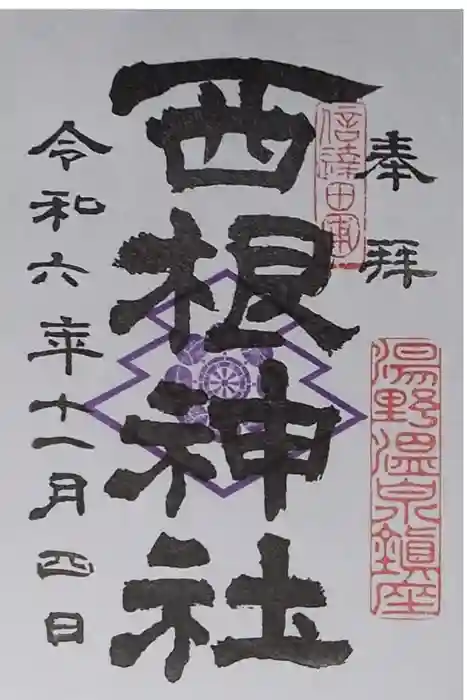 奉拜
信達田東
湯野温泉鎮座
西根神社
令和六年十一月四日